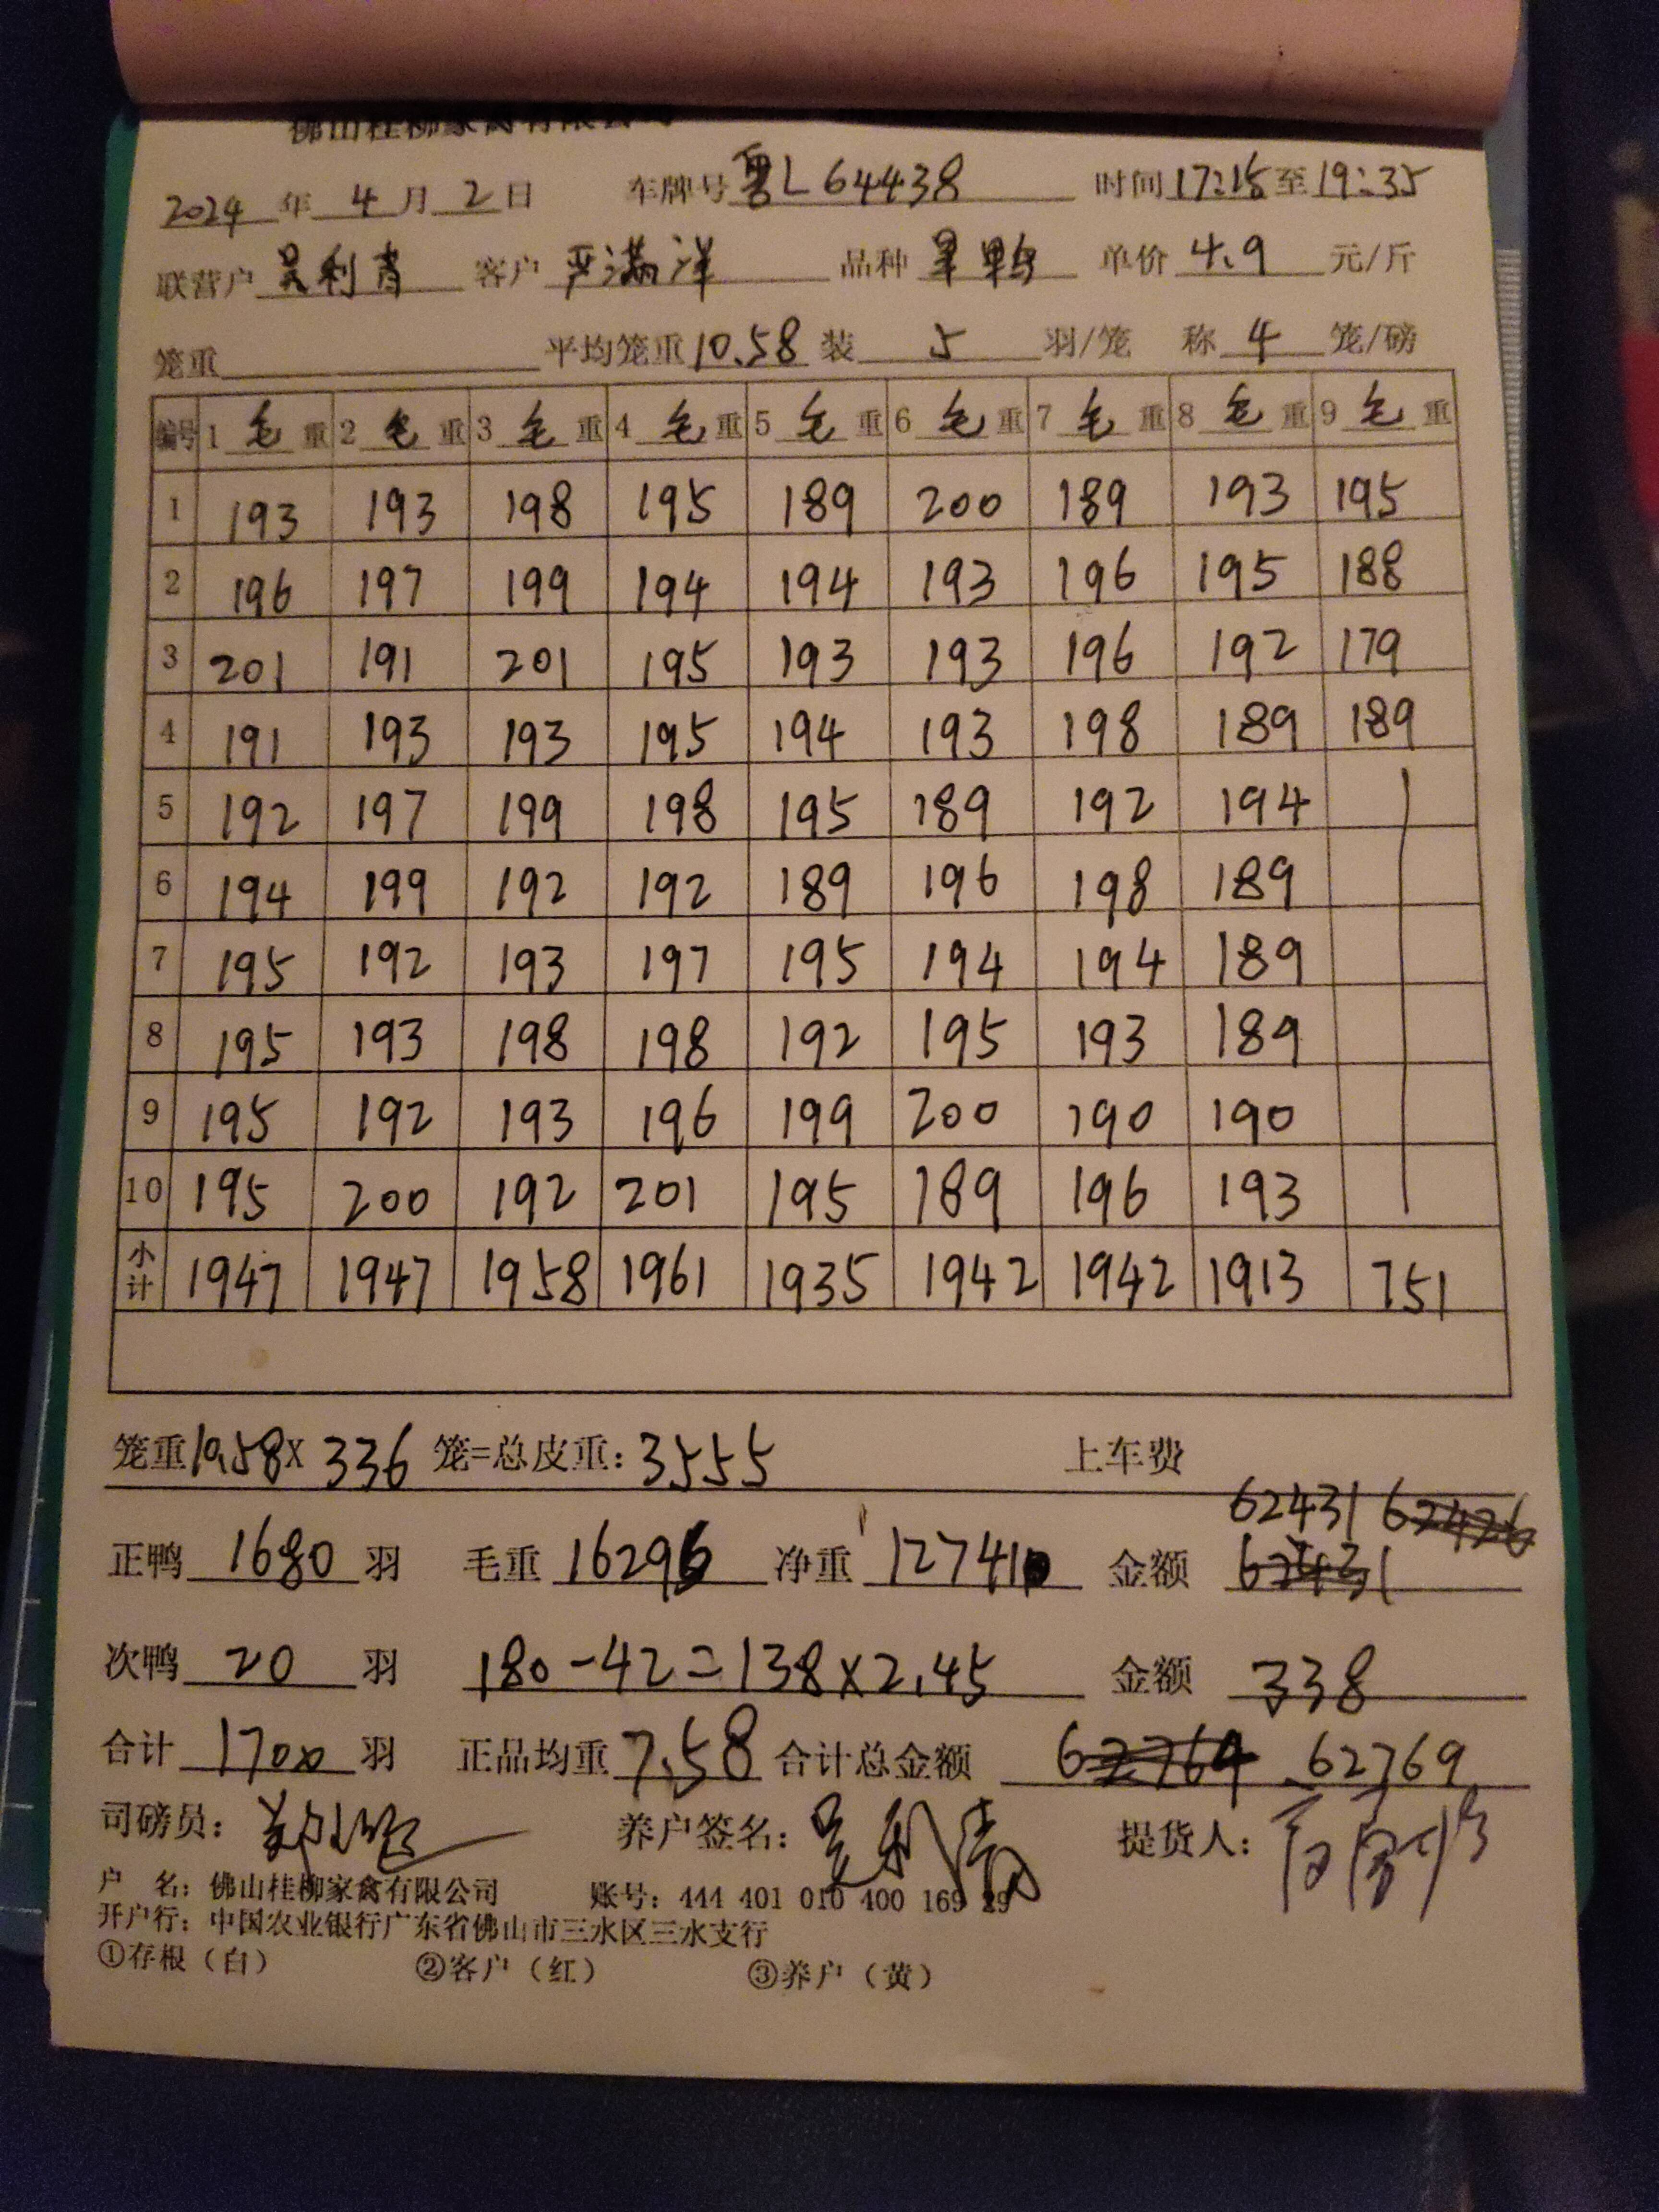 佛山桂柳家禽有限公司
2024年 4月 2日 车牌号 粤L64438 时间 17:15至19:35
联营户 吴利青 客户 严满洋 品种 单价 4.9 元/斤
笼重 平均笼重 10.58 装 5 羽/笼 称 4 笼/磅
编号 1 毛重 2 毛重 3 毛重 4 毛重 5 毛重 6 毛重 7 毛重 8 毛重 9 毛重
1 193 193 198 195 189 200 189 193 195
2 196 197 199 194 194 193 196 195 188
3 201 191 201 195 193 193 196 192 179
4 191 193 193 195 194 193 198 189 189
5 192 197 199 198 195 189 192 194
6 194 199 192 192 189 196 198 189
7 195 192 193 197 195 194 194 189
8 195 193 198 198 192 195 193 189
9 195 192 193 196 199 200 190 190
10 195 200 192 201 195 189 196 193
小计 1947 1947 1958 1961 1935 1942 1942 1913 751
笼重10.58× 336 笼=总皮重: 3555 上车费
62431 62426
正鸭 1680 羽 毛重 16296 净重 12741 金额 62431
次鸭 20 羽 180-42=138×2.45 金额 338
合计 1700 羽 正品均重 7.58 合计总金额 62764 62769
司磅员: 养户签名: 吴利青 提货人:
户 名: 佛山桂柳家禽有限公司 账号: 444 401 010 400 169 29
开户行: 中国农业银行广东省佛山市三水区三水支行
①存根(白) ②客户(红) ③养户(黄)